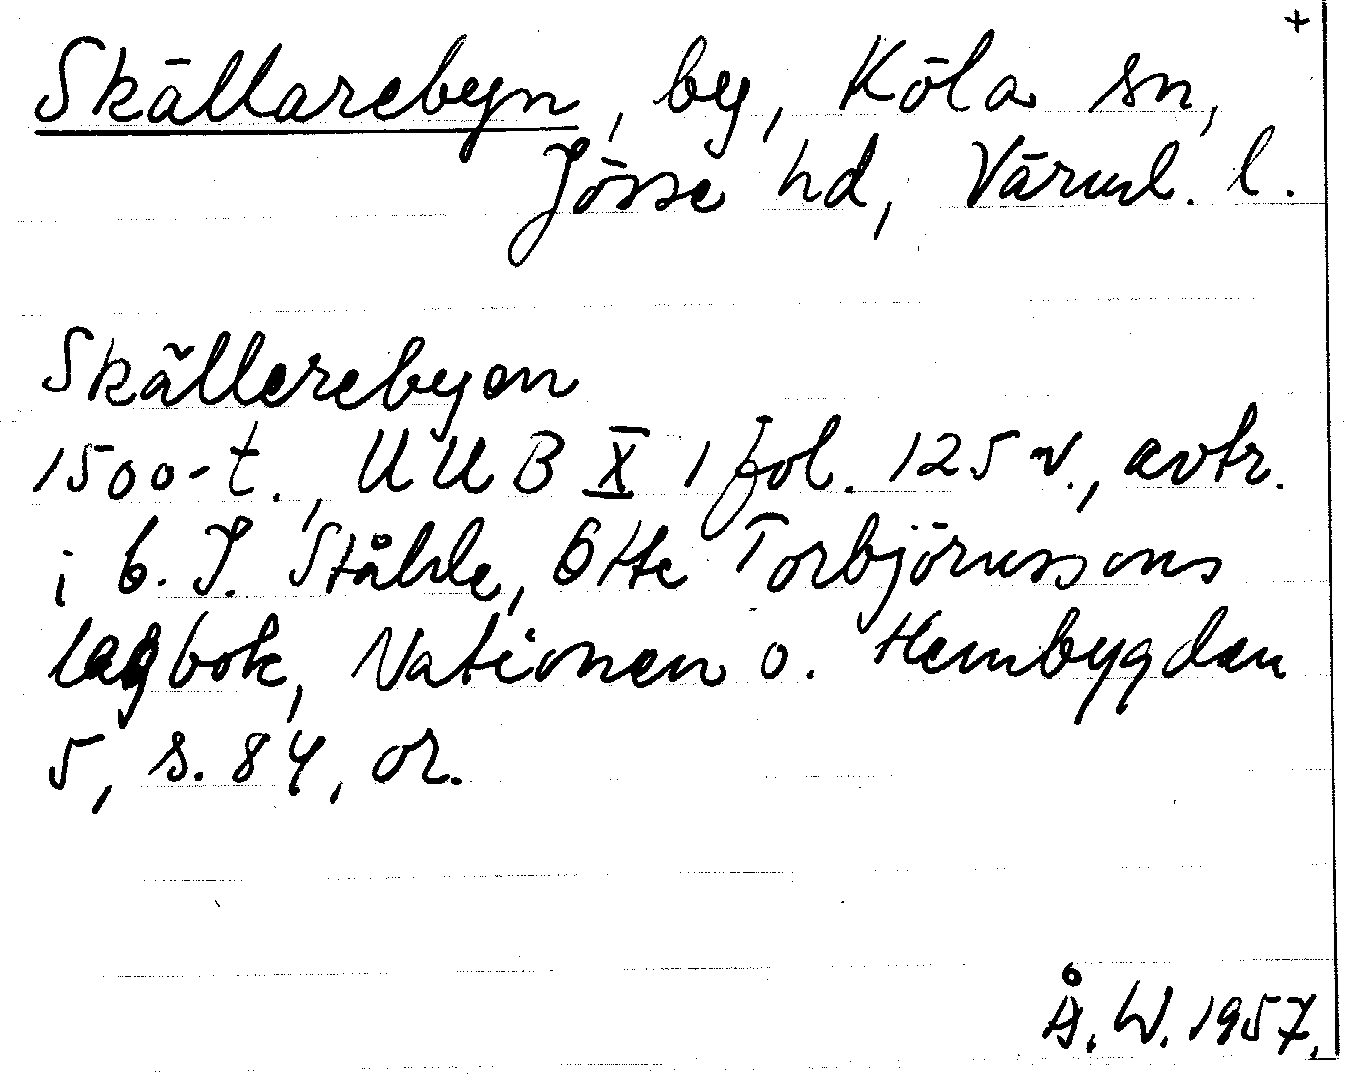 +
Skällarebyn, by, Köla sn,
Jösse hd, Värml. l.
Skällerebyen
1500-t., UUB X 1 fol. 125 v., avtr.
i C. I. Ståhle, Otte Torbjörnssons
lagbok, Nationen o. Hembygden
5, s. 84, or.
Å. W. 1957.